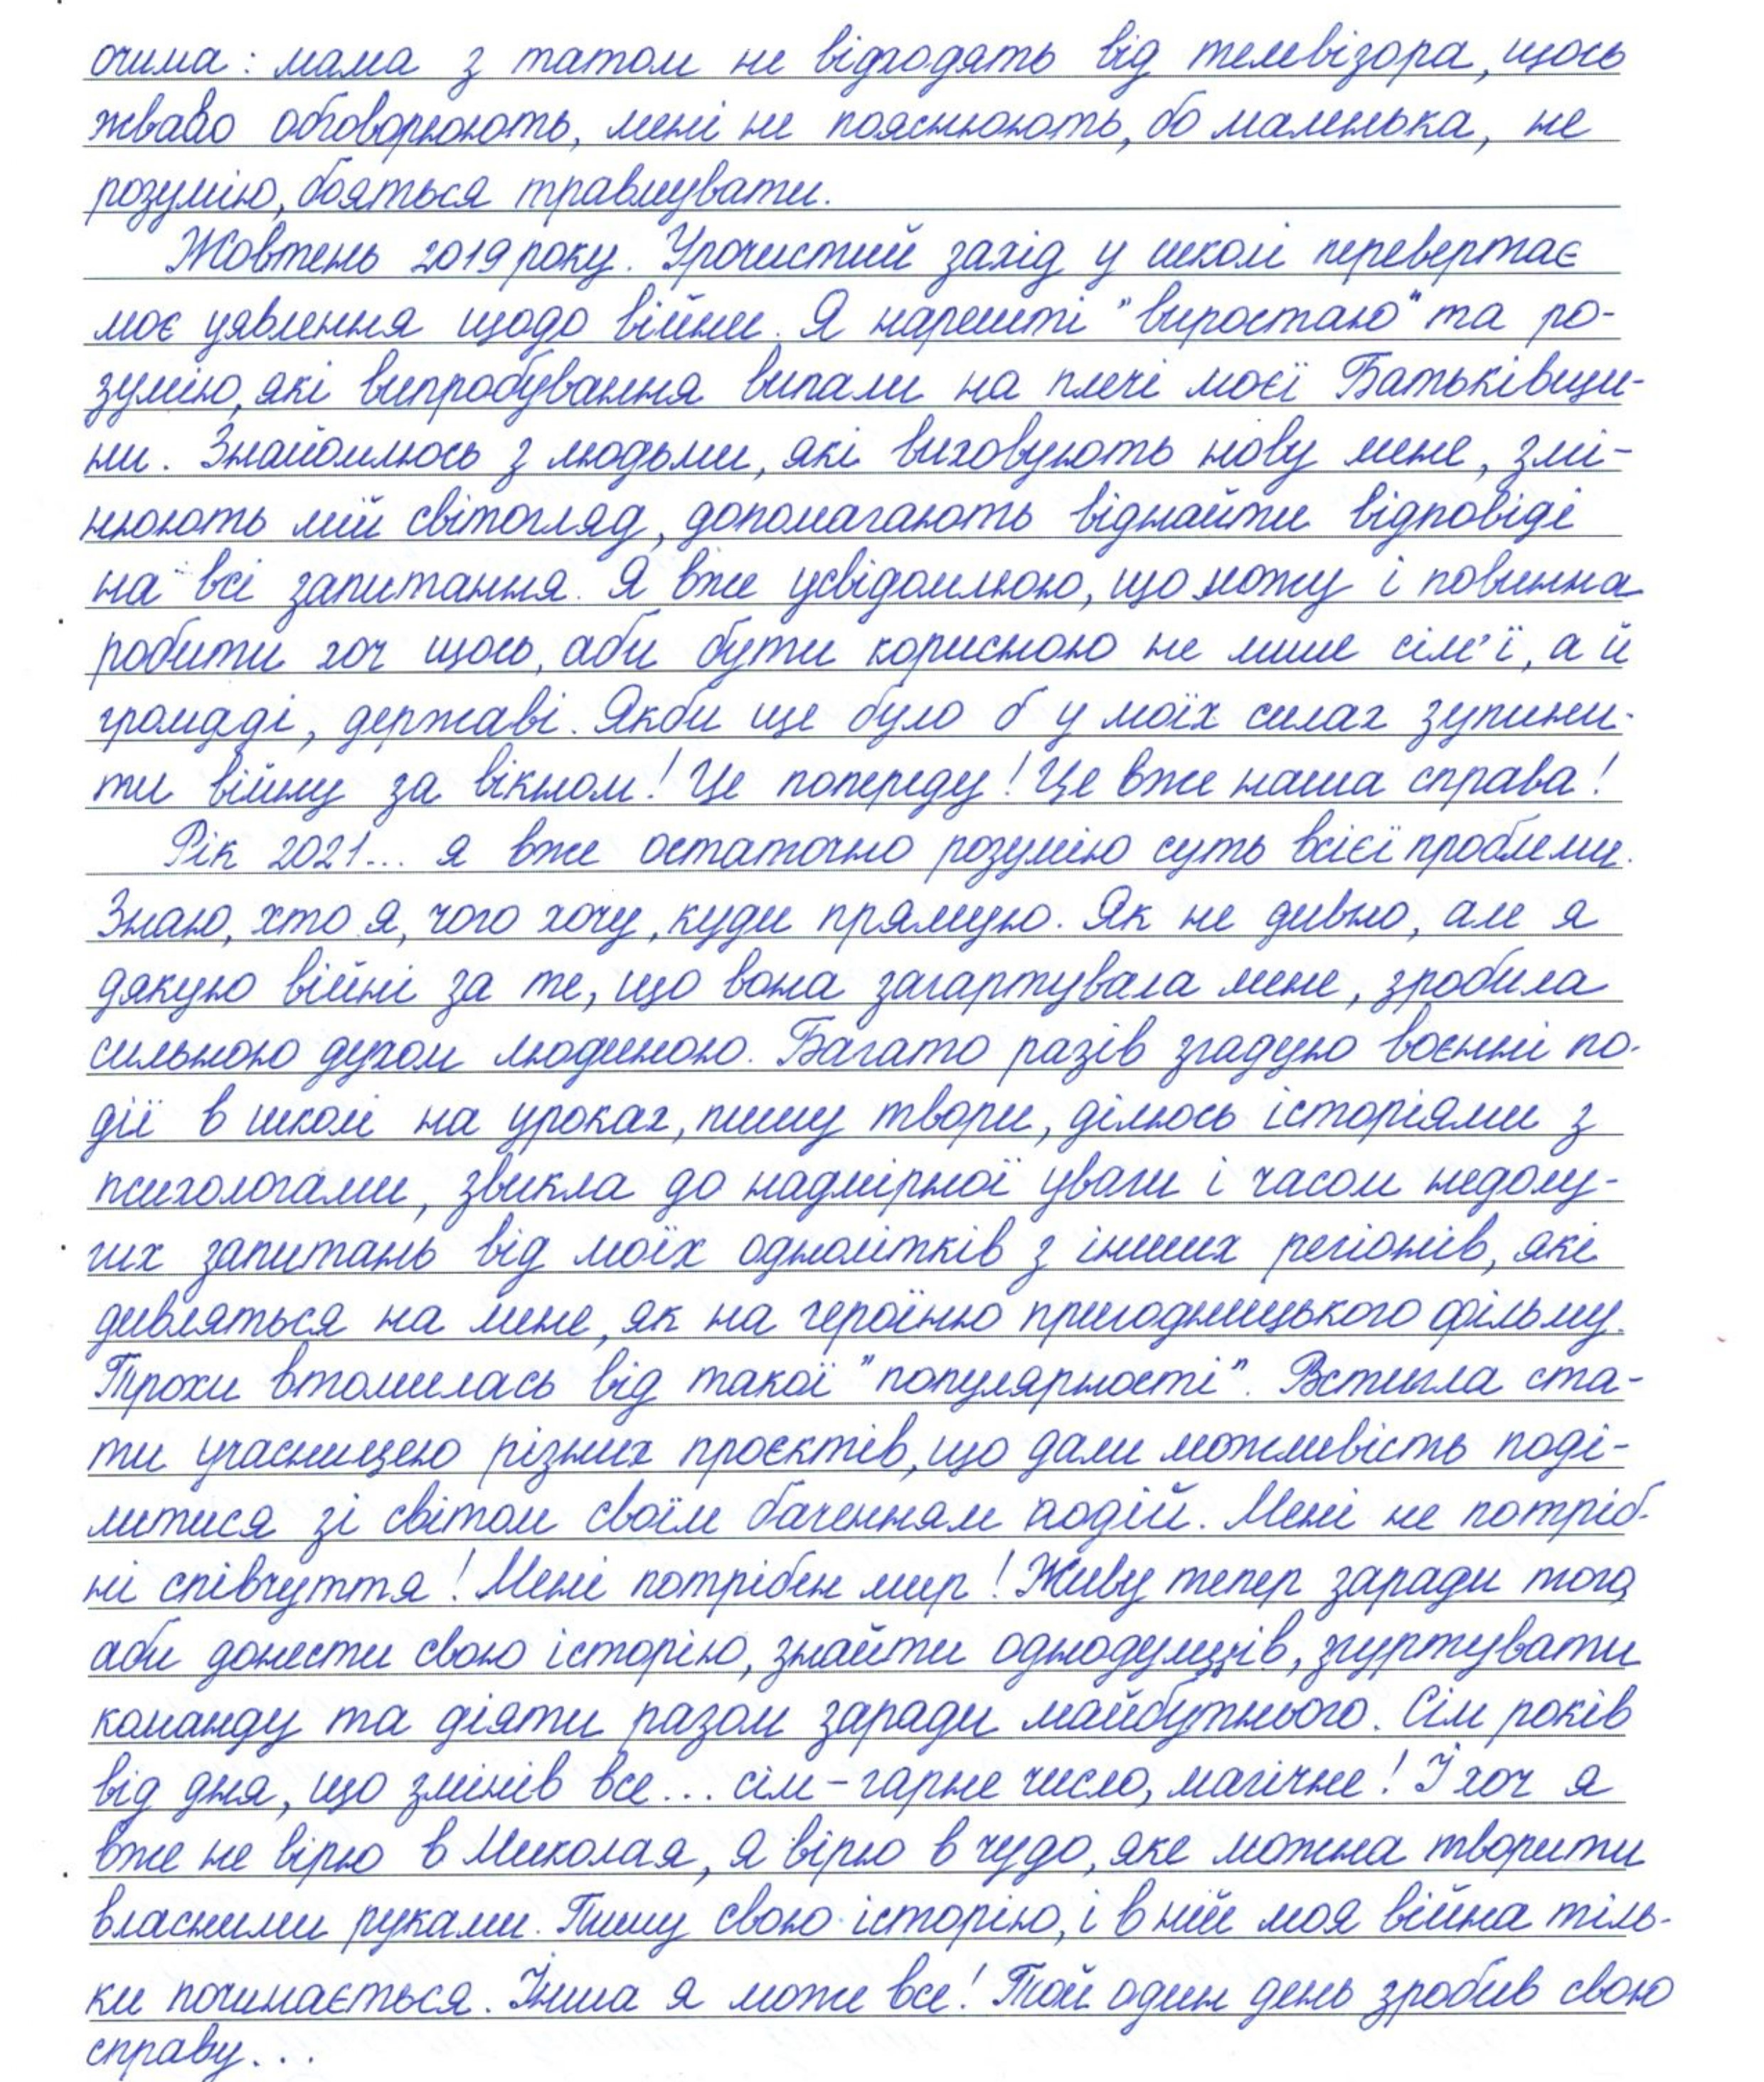 очима: мама з татом не відходять від телевізора, щось
жваво обговорюють, мені не пояснюють, бо маленька, не
розумію, бояться травмувати.
Жовтень 2019 року. Урочистий захід у школі перевертає
моє уявлення щодо війни. Я нарешті "виростаю" та ро-
зумію, які випробування випали на плечі моєї Батьківщи-
ни. Знайомлюсь з людьми, які виховують нову мене, змі-
нюють мій світогляд, допомагають віднайти відповіді
на всі запитання. Я вже усвідомлюю, що можу і повинна
робити хоч щось, аби бути корисною не лише сім'ї, а й
громаді, державі. Якби ще було б у моїх силах зупини-
ти війну за вікном! Це попереду! Це вже наша справа!
Рік 2021... я вже остаточно розумію суть всієї проблеми.
Знаю, хто я, чого хочу, куди прямую. Як не дивно, але я
дякую війні за те, що вона загартувала мене, зробила
сильною духом людиною. Багато разів згадую воєнні по-
дії в школі на уроках, пишу твори, ділюсь історіями з
психологами, звикла до надмірної уваги і часом недолу-
гих запитань від моїх однолітків з інших регіонів, які
дивляться на мене, як на героїню пригодницького фільму.
Трохи втомилась від такої "популярності". Встигла ста-
ти учасницею різних проєктів, що дали можливість поді-
литися зі світом своїм баченням подій. Мені не потріб-
ні співчуття! Мені потрібен мир! Живу тепер заради того,
аби донести свою історію, знайти однодумців, згуртувати
команду та діяти разом заради майбутнього. Сім років
від дня, що змінив все... сім - гарне число, магічне! І хоч я
вже не вірю в Миколая, я вірю в чудо, яке можна творити
власними руками. Пишу свою історію, і в ній моя війна тіль-
ки починається. Інша я може все! Той один день зробив свою
справу...